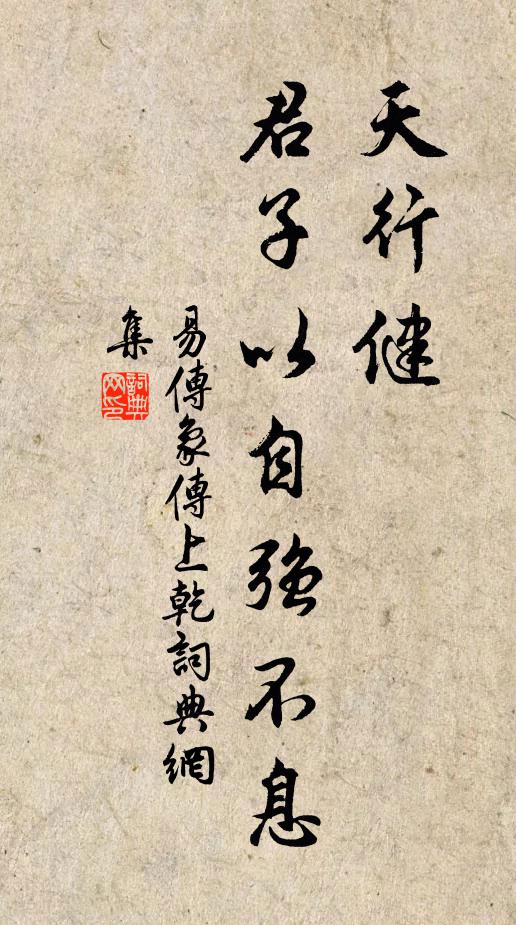 天行健
君子以自強不息
易傳象傳上乾詞典網
集
詞典網印